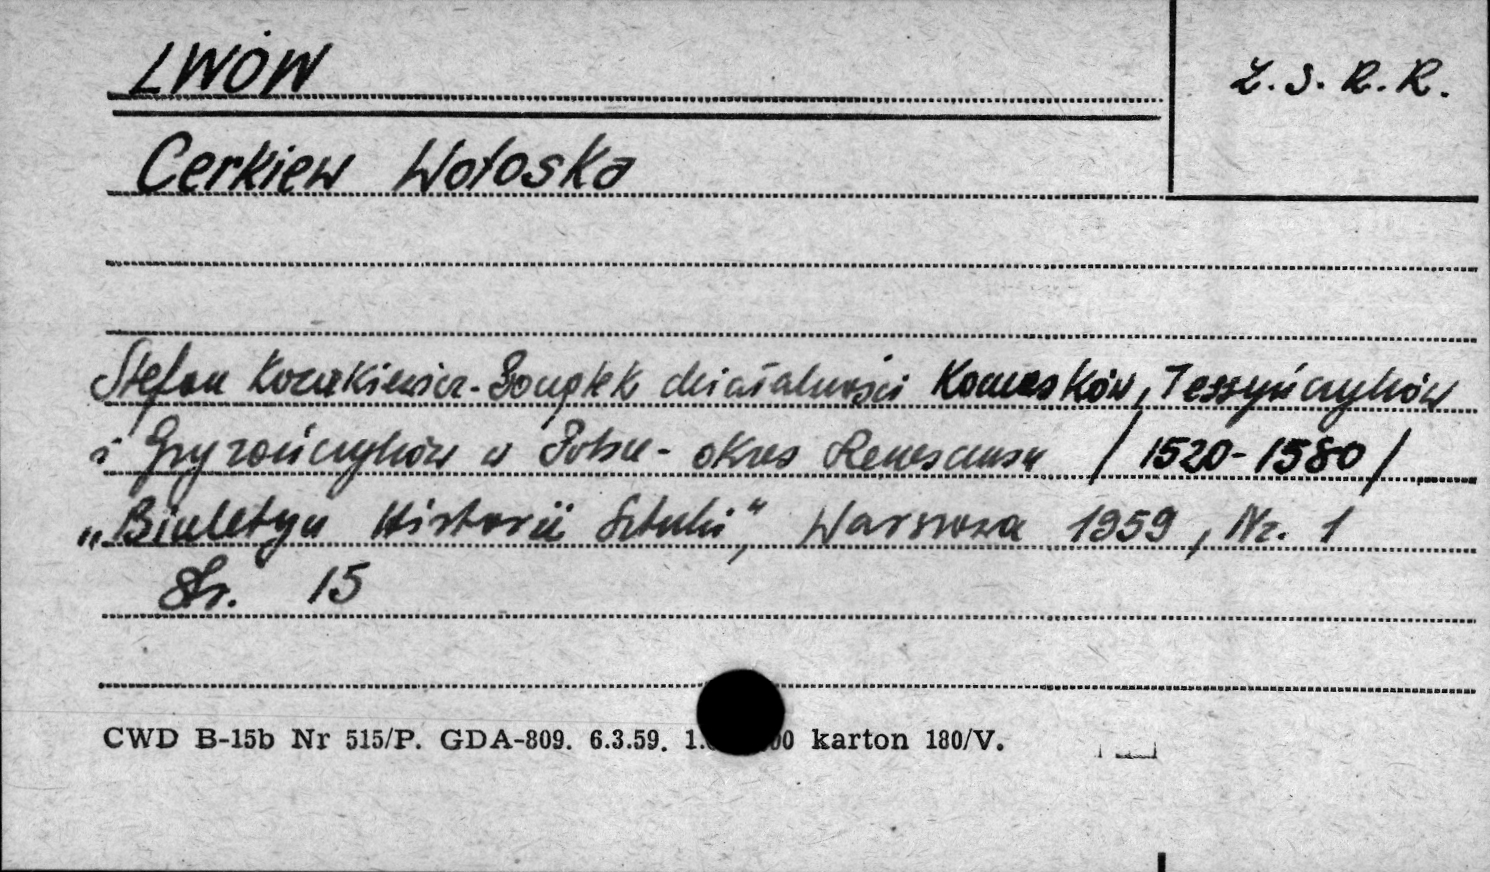 LWÓW
Z.S.R.R.
Cerkiew Wołoska
Stefan Kozakiewicz - Początek działalności Komasków, Tessyńczyków
i Gryzończyków w Polsce - okres Renesansu /1520-1580/
„Biuletyn Historii Sztuki", Warszawa 1959, Nr. 1
Str. 15
CWD B-15b Nr 515/P. GDA-809. 6.3.59. karton 180/V.